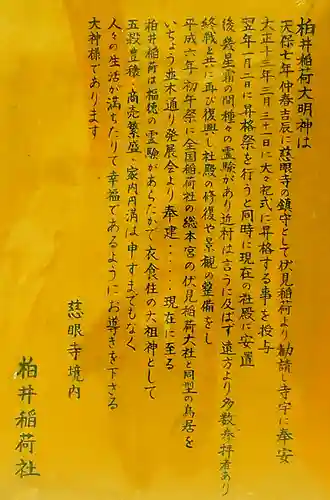 柏井稲荷大明神は
天保七年仲春吉辰に慈眼寺の鎮守として伏見稲荷より勧請し寺宇に奉安
大正十三年三月三十一日に大々祀式に昇格する事を授与
翌年一月二日に昇格祭を行うと同時に現在の社殿に安置
後幾星霜の間種々の霊験があり近村は言うに及ばず遠方より多数参拝者あり
終戦と共に再び復興し社殿の修復や景観の整備をし
平成六年初午祭に全国稲荷社の総本宮の伏見稲荷大社と同型の鳥居を
いちょう並木通り発展会より奉建・・・・・現在に至る
柏井稲荷は福徳の霊験があらたかで衣食住の大祖神として
五穀豊穣・商売繁盛・家内円満は申すまでもなく
人々の生活が満ちたりて幸福であるようにお導きを下さる
大神様であります
慈眼寺境内
柏井稲荷社